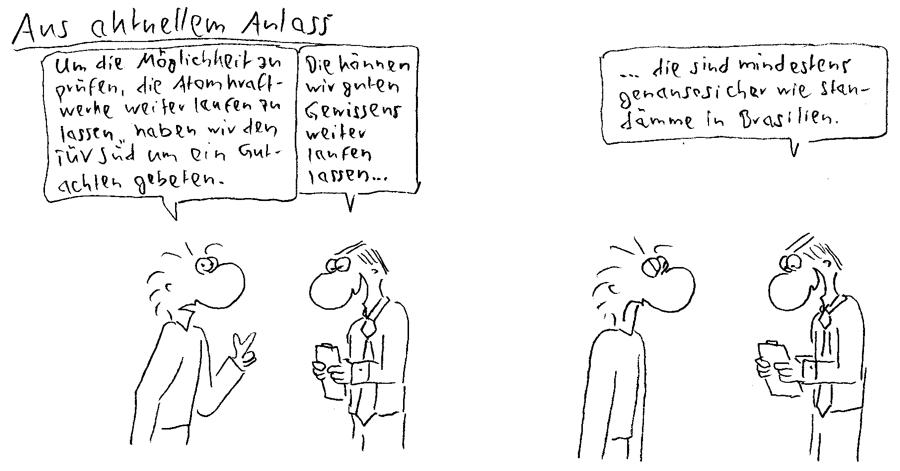 Aus aktuellem Anlass
Um die Möglichkeit zu
prüfen, die Atomkraft-
werke weiter laufen zu
lassen, haben wir den
TÜV Süd um ein Gut-
achten gebeten.
Die können
wir guten
Gewissens
weiter
laufen
lassen...
... die sind mindestens
genausosicher wie Stau-
dämme in Brasilien.